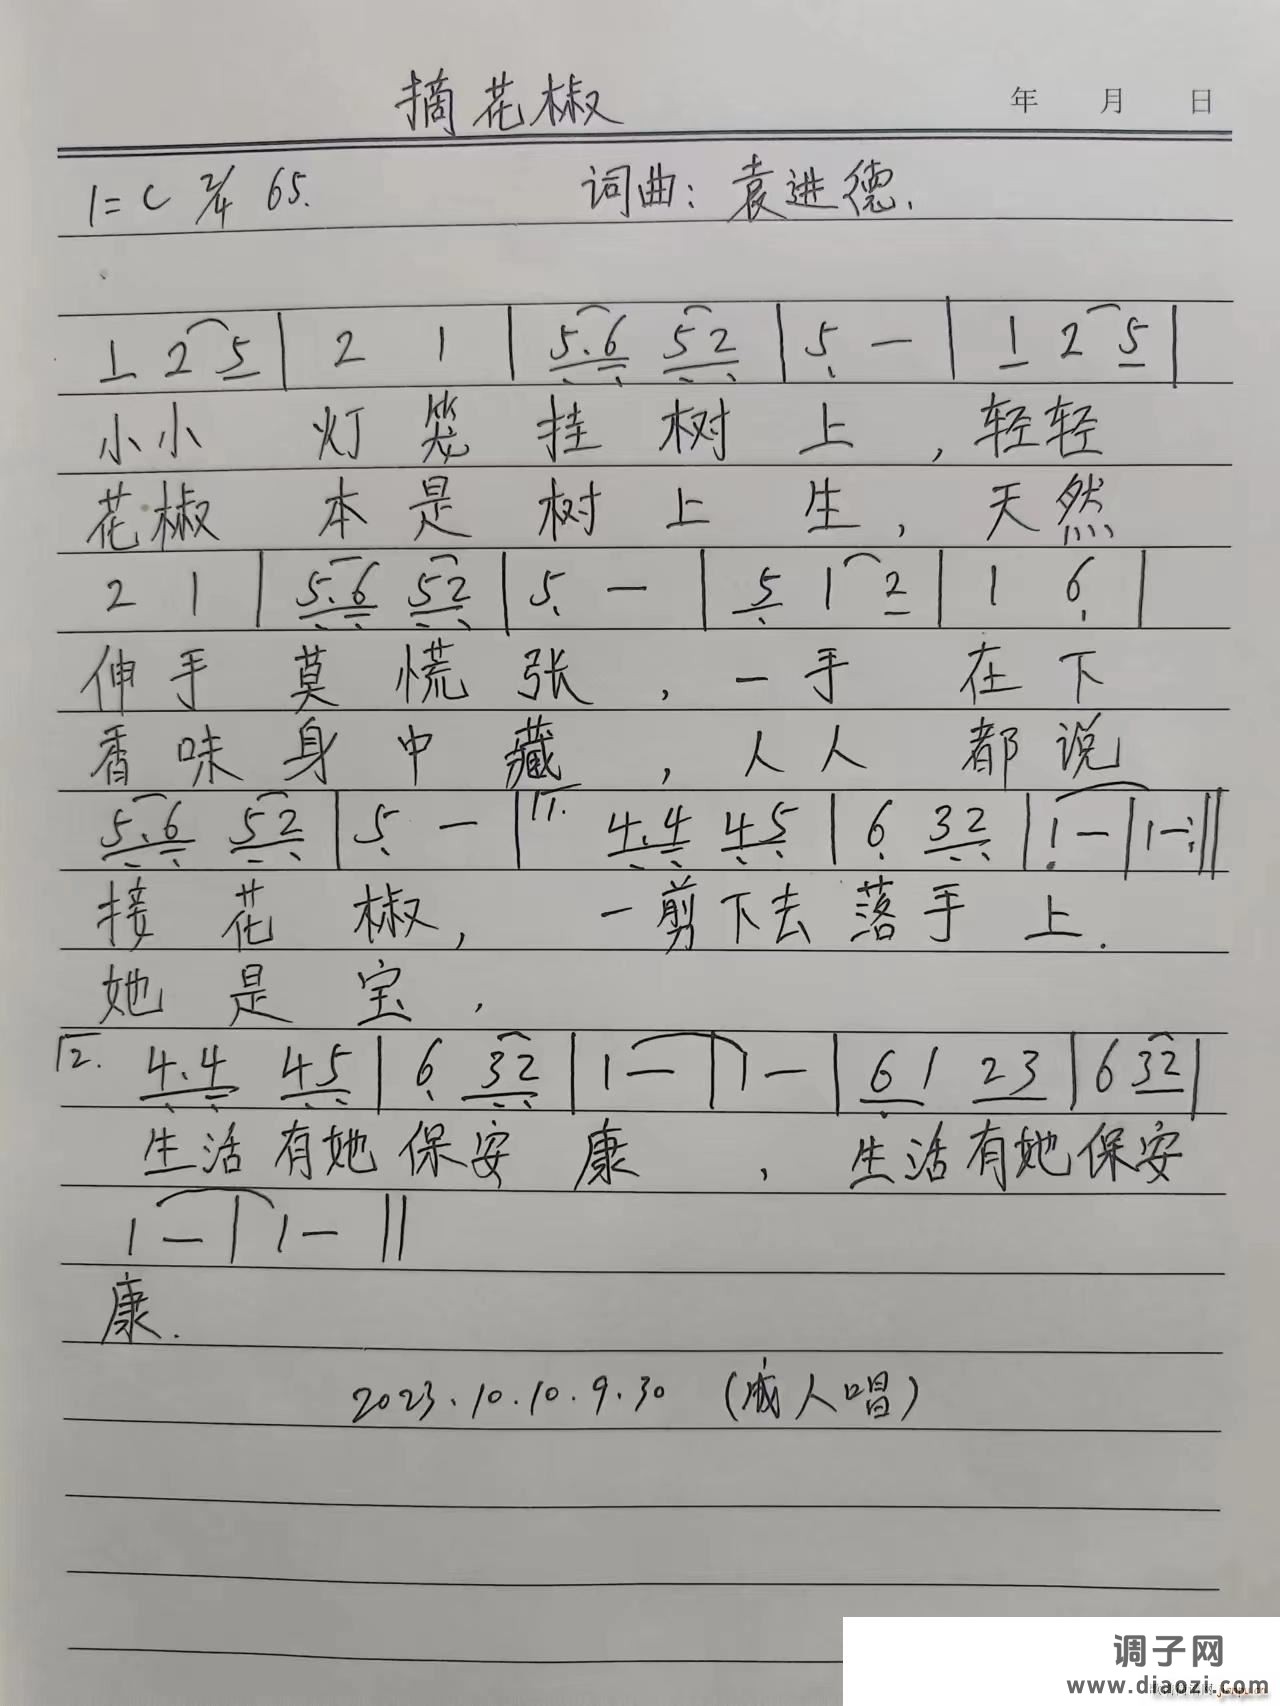 摘花椒
年 月 日
1=C 2/4 65.
词曲:袁进德.
1 2 5 | 2 1 | 5.6 52 | 5 — | 1 2 5 |
小小 灯笼 挂 树 上 , 轻轻
花椒 本 是 树 上 生 , 天然
2 1 | 5.6 52 | 5 — | 5 1 2 | 1 6 |
伸手 莫 慌 张 , 一手 在下
香味 身 中 藏 , 人人 都说
5.6 52 | 5 — | 1. 4.4 45 | 6 32 | 1 — | 1 — :||
接 花 椒, 一剪下去 落手 上.
她 是 宝 ,
2. 4.4 45 | 6 32 | 1 — | 1 — | 61 23 | 6 32 |
生活有她保安 康 , 生活有她保安
1 — | 1 — ||
康.
2023.10.10.9.30 (成人唱)
调子网
www.diaozi.com